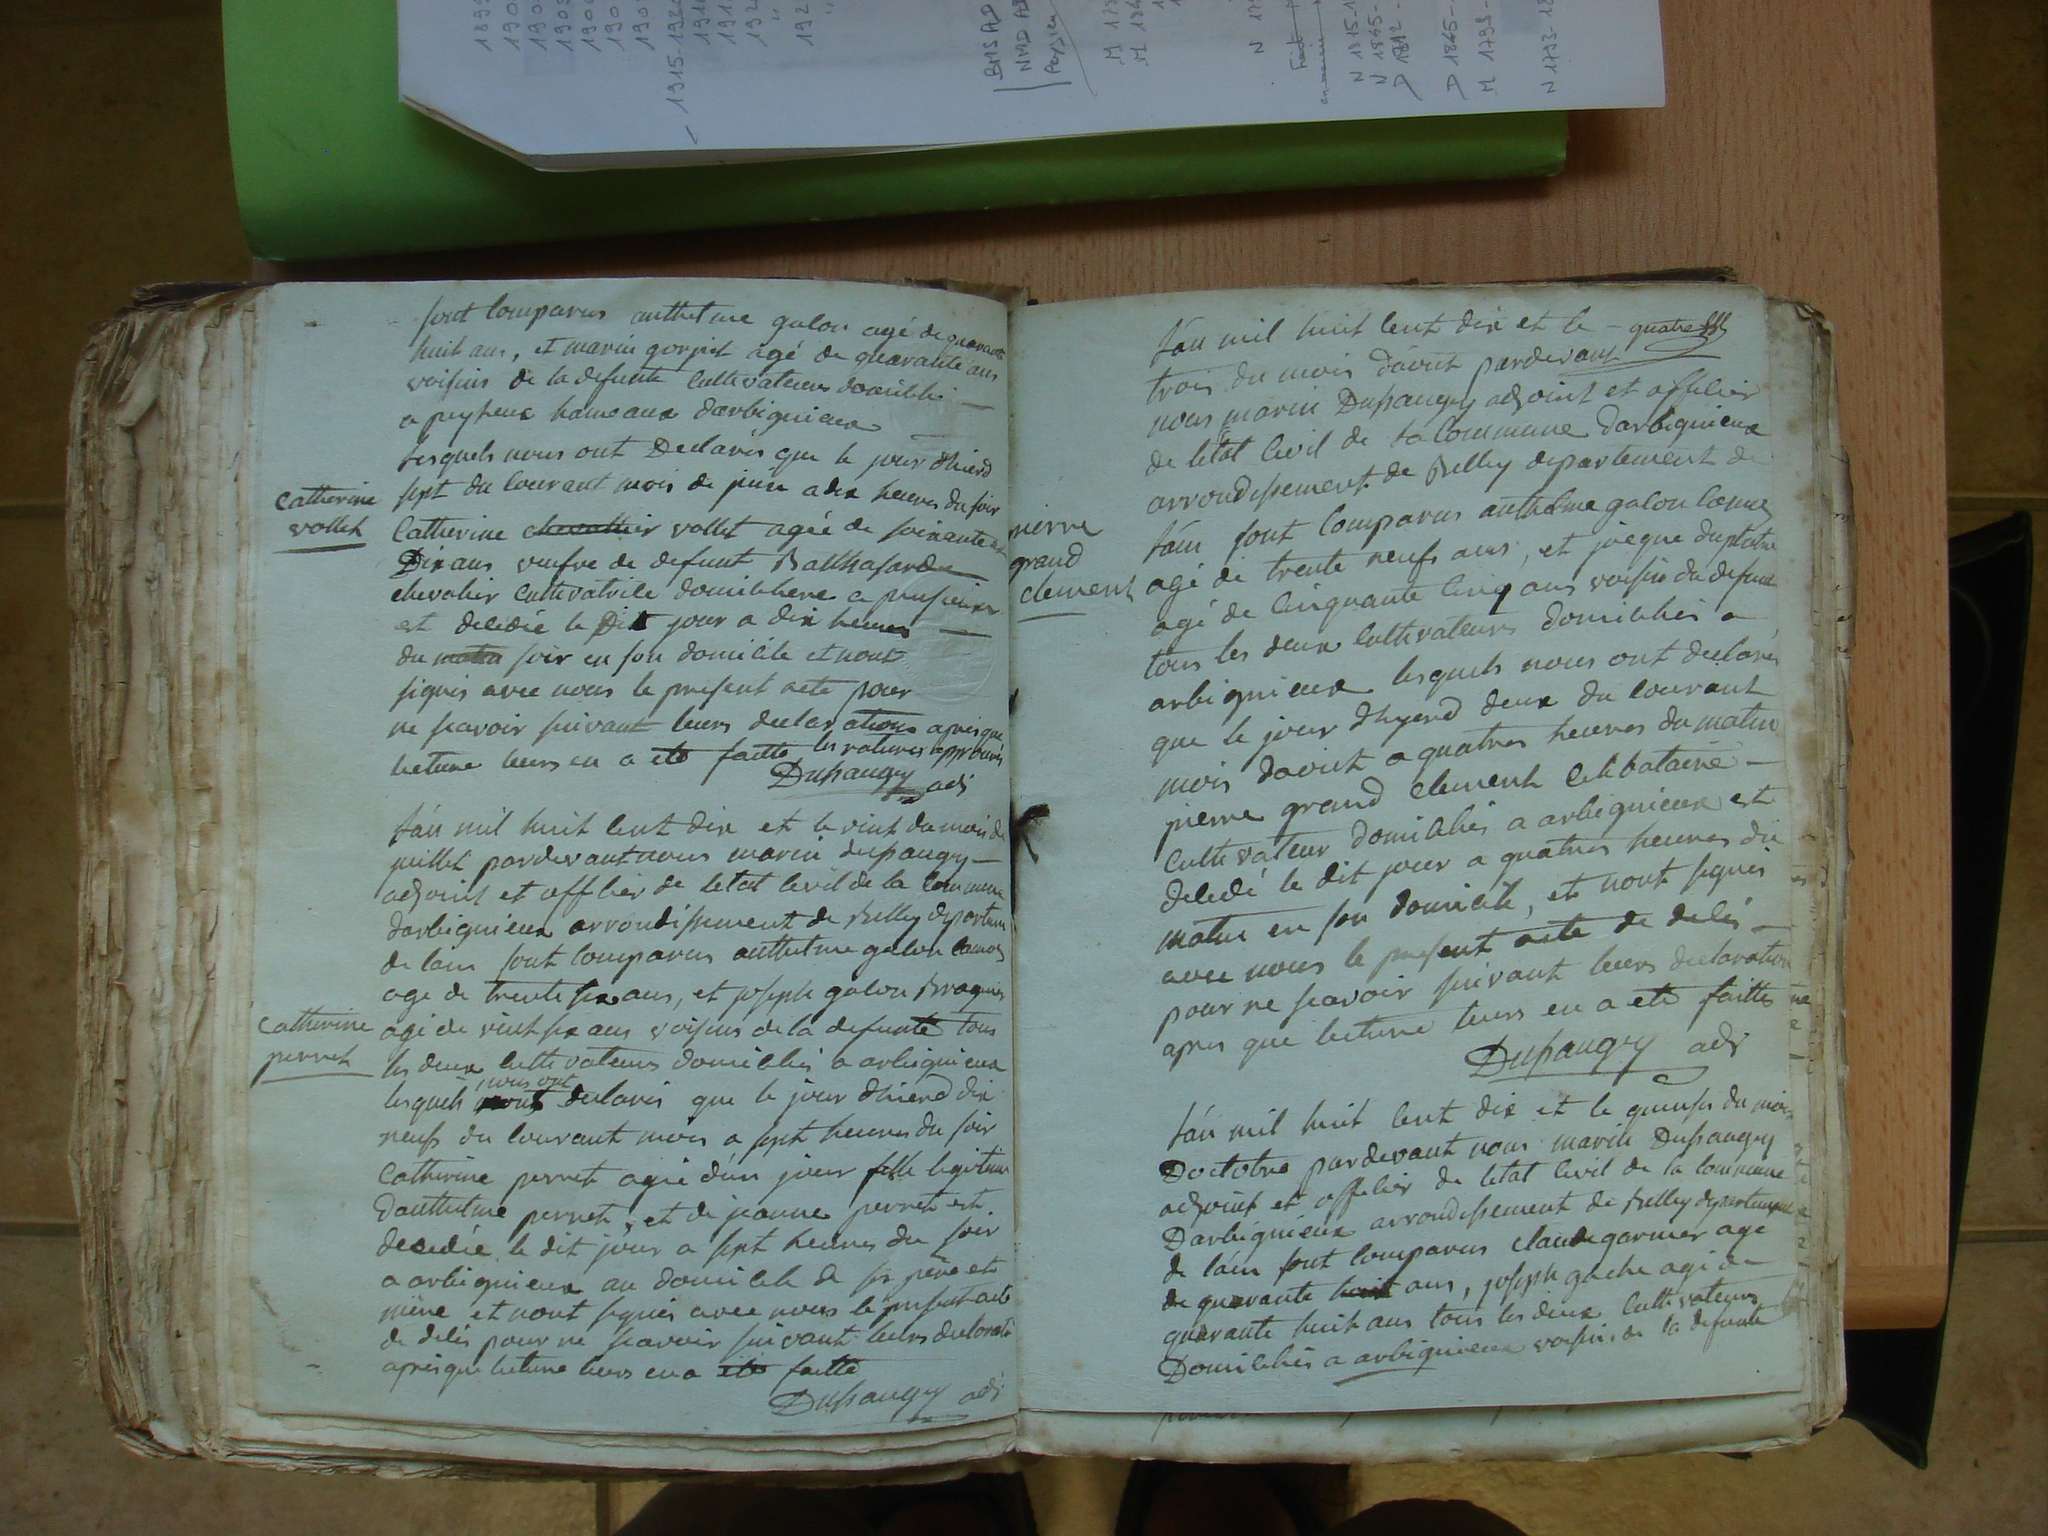 1915-1920
BMS AD
NMD AD
N 1793-18
sont comparus anthelme galon agé de quarante
huit ans, et marin gorjut agé de quarante ans
voisins de la defunte cultivateurs domiciliés
a peyzieux hameaux darbignieux
lesquels nous ont Declarés que le jour dhierd
sept du courant mois de juin a dix heures du soir
Catherine
vollet
Catherine chevallier vollet agée de soixante et
Dix ans veufve de defunt Balthasard
chevalier cultivatrice domiciliere a
est decedée le Dit jour a dix heures
du matin soir en son domicile et nont
signés avec nous le present acte pour
ne scavoir suivant leurs declarations apres que
lecture leurs en a eté faitte les ratures approuvés
Dupaugey adj
lán mil huit cent dix et le vint du mois de
juillet pardevant nous marin dupaugey
adjoint et officier de letat civil de la commune
darbignieux arrondissement de Belley departem
de lain sont comparus anthelme galon
age de trente six ans, et joseph galon
Catherine
perret
agé de vint six ans voisins de la defunte tous
les deux cultivateurs domiciliés a arbignieux
lesquels nous ont declarés que le jour dhierd dix
neufs du courant mois a sept heures du soir
Catherine perret agée dun jour fille legitime
Danthelme perret, et de jeanne perret est
decedée le dit jour a sept heures du soir
a arbignieux au domicile de ses père et
mère et nont signés avec nous le present acte
de decés pour ne scavoir suivant leurs declarati
apres que lecture leurs en a eté faitte
Dupaugey adj
lán mil huit cent dix et le quatre
trois du mois daout pardevant
nous marin Dupaugey adjoint et officier
de letat civil de la Commune darbignieux
arrondissement de Belley departement de
pierre
grand
clement
láin sont comparus anthelme galon
agé de trente neufs ans, et jacque duplatre
agé de cinquante cinq ans voisins du defunt
tous les deux cultivateurs domiciliés a
arbignieux lesquels nous ont declarés
que le jour dhyerd deux du courant
mois daout a quatres heures du matin
pierre grand clement celibataire
Cultivateur domiciliés a arbignieux est
decedé le dit jour a quatres heures du
matin en son domicile, et nont signés
avec nous le present acte de decés
pour ne scavoir suivant leurs declaration
apres que lecture leurs en a eté faittes
Dupaugey adj
lán mil huit cent dix et le du mois
Doctobre pardevant nous marin Dupaugey
adjoint et officier de letat civil de la commune
Darbignieux arrondissement de Belley departement
de láin sont comparus claude garnier age
de quarante huit ans, joseph gache agé de
quarante huit ans tous les deux cultivateurs
Domiciliés a arbignieux voisins de la defunte